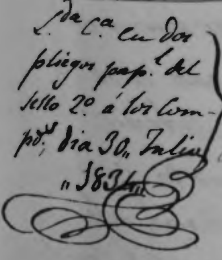 L.da C.a en dos
pliegos pap.l del
sello 2.º á los Com-
pd.s dia 30,, Julio
,, 1834,,